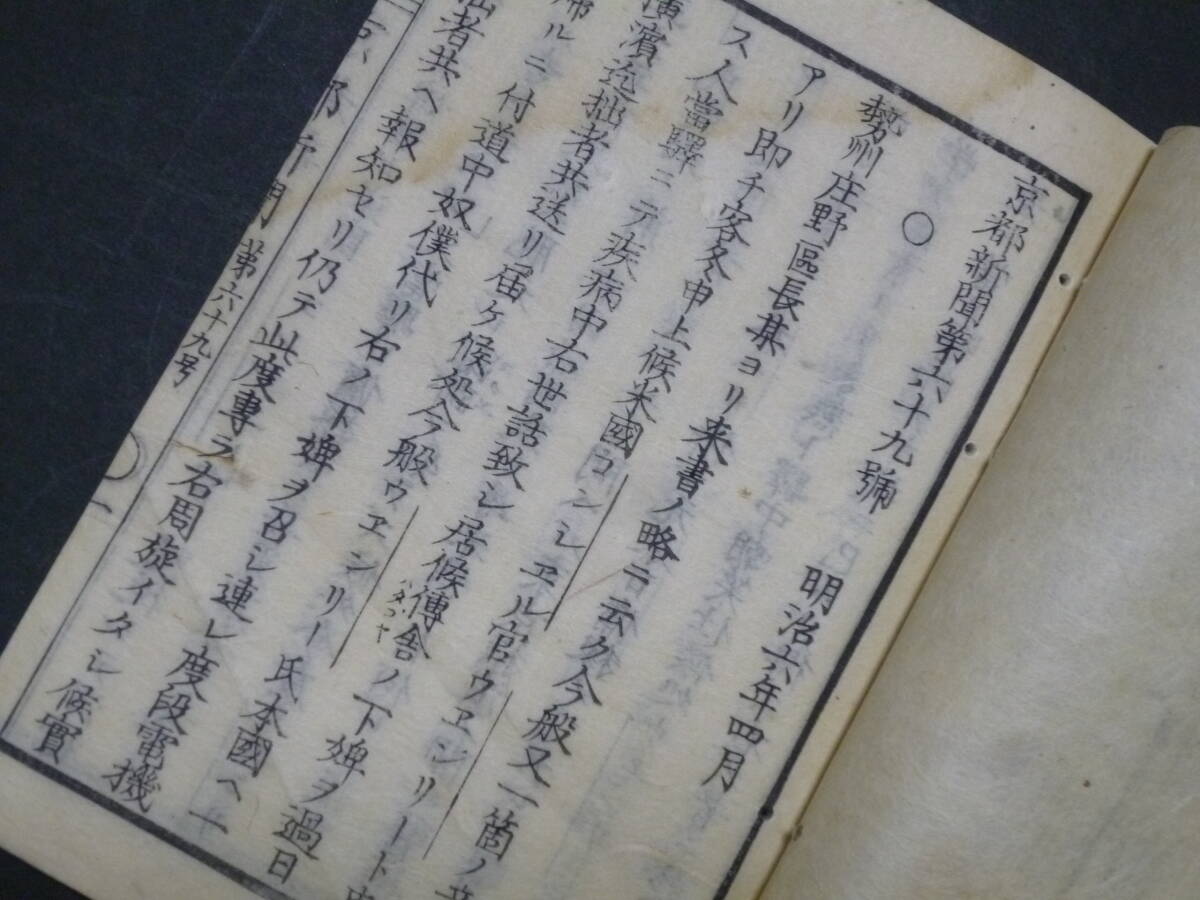 京都新聞第六十九號　明治六年四月
○
勢州庄野區長某ヨリ来書ノ略ニ云ク今般又一箇ノ
アリ即チ客冬申上候米國コンシヱル官ウヱンリート
ス人當驛ニテ疾病中右世話致シ居候傳舎ノ下婢ヲ過日
ハタゴヤ
濱迄拙者共送リ届ケ候処今般ウヱンリー氏本國ヘ
帰ルニ付道中奴僕代リ右ノ下婢ヲ召シ連レ度段電機
者共ヘ報知セリ仍テ此度専ラ右周旋イタシ候實
新聞第六十九号
一